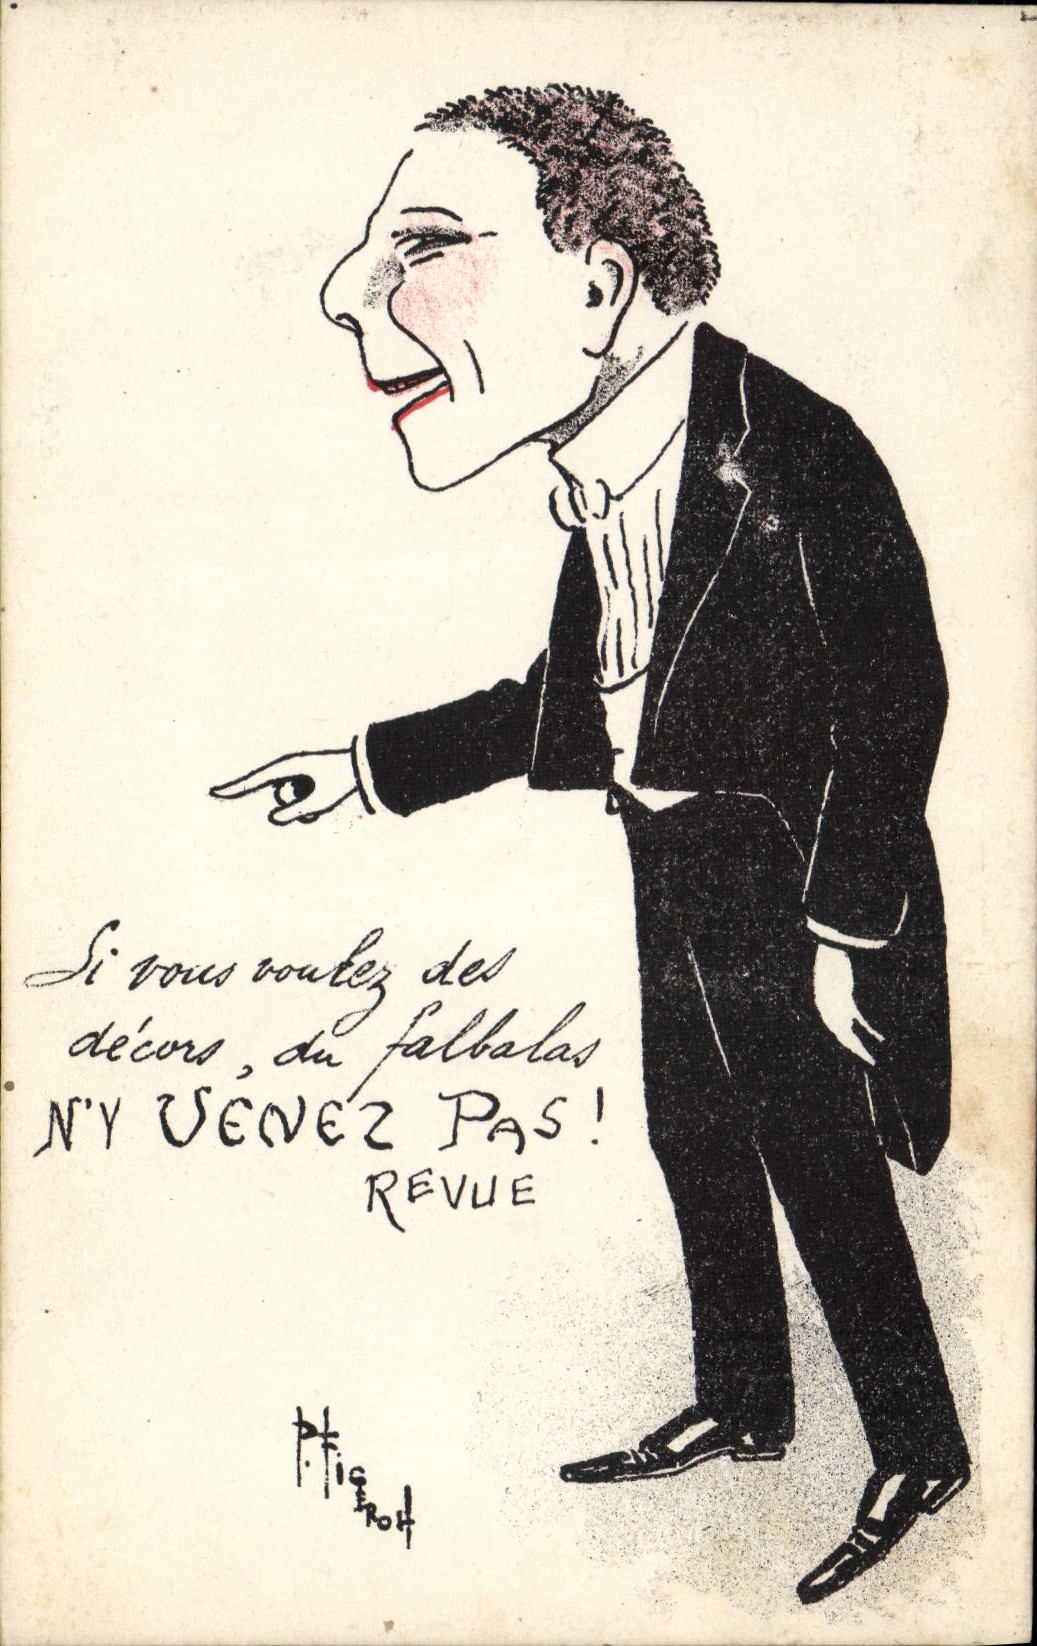 Si vous voulez des
décors, du falbalas
N'Y VENEZ PAS!
REVUE